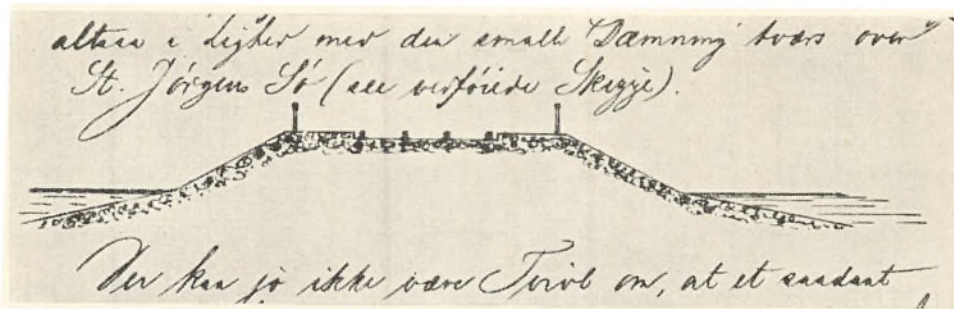 altsaa i Lighed med den smalle Dæmning tværs over
St. Jörgens Sö (see vedföiede Skizze).
Der kan jo ikke være Tvivl om, at et saadant